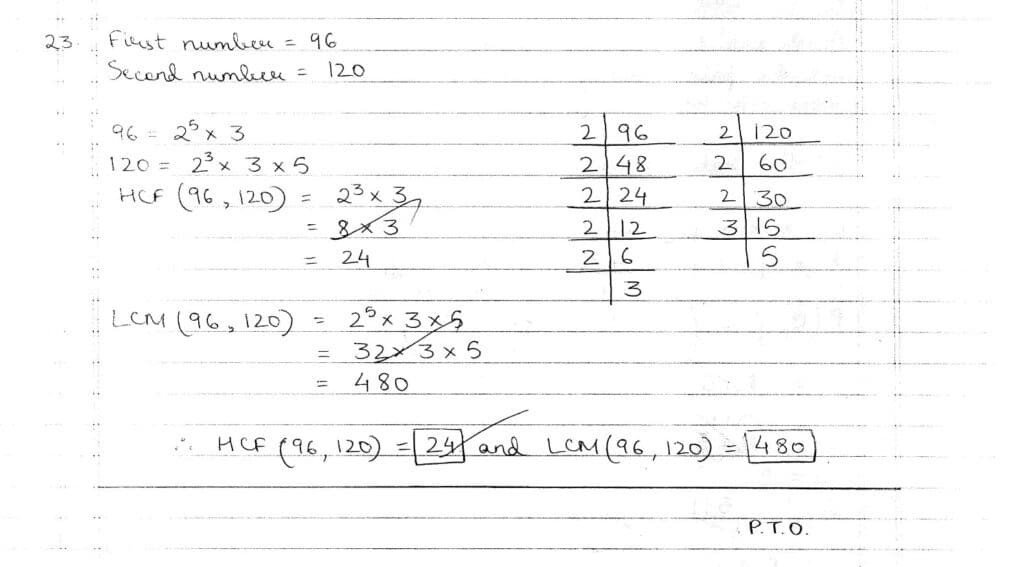 23. First number = 96
Second number = 120
96 = 2⁵ x 3
120 = 2³ x 3 x 5
HCF (96, 120) = 2³ x 3
= 8 x 3
= 24
2 | 96
2 | 48
2 | 24
2 | 12
2 | 6
3
2 | 120
2 | 60
2 | 30
3 | 15
5
LCM (96, 120) = 2⁵ x 3 x 5
= 32 x 3 x 5
= 480
∴ HCF (96, 120) = 24 and LCM (96, 120) = 480
P.T.O.